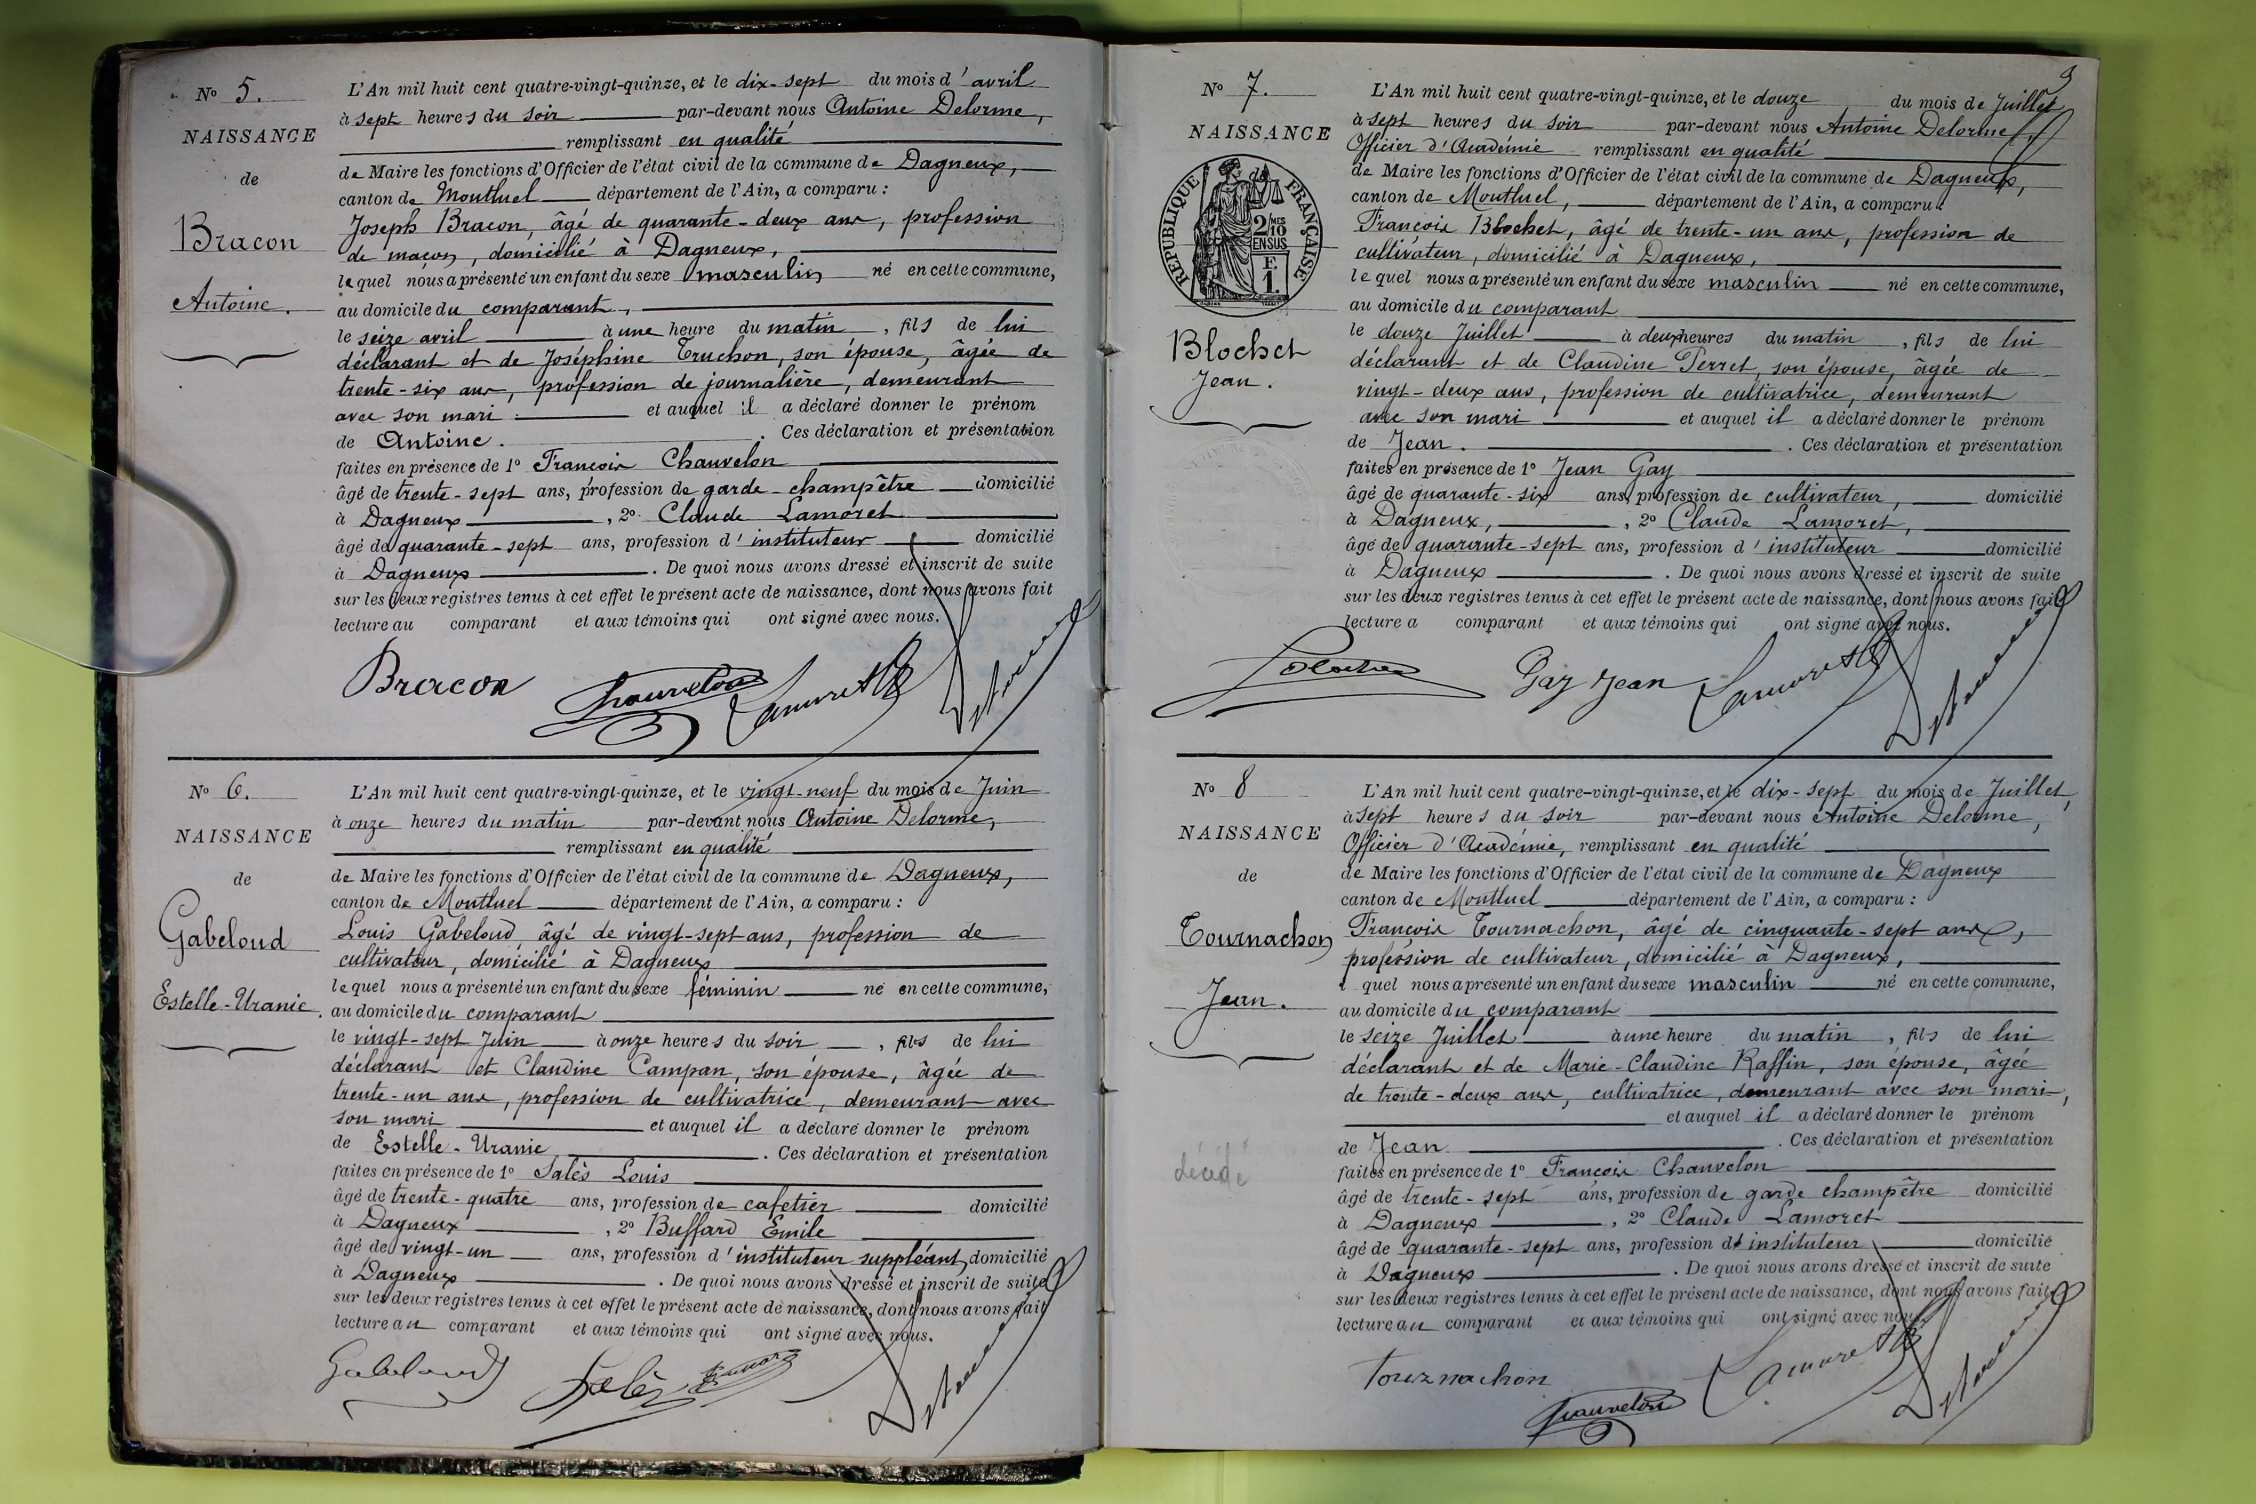 Nº 5.
NAISSANCE
de
Bracon
Antoine.
L'An mil huit cent quatre-vingt-quinze, et le dix-sept du mois d'avril
à sept heures du soir par-devant nous Antoine Delorme,
remplissant en qualité
de Maire les fonctions d'Officier de l'état civil de la commune de Dagneux,
canton de Montluel département de l'Ain, a comparu :
Joseph Bracon, âgé de quarante-deux ans, profession
de maçon, domicilié à Dagneux,
lequel nous a présenté un enfant du sexe masculin né en cette commune,
au domicile du comparant,
le seize avril à une heure du matin, fils de lui
déclarant et de Joséphine Truchon, son épouse, âgée de
trente-six ans, profession de journalière, demeurant
avec son mari et auquel il a déclaré donner le prénom
de Antoine. Ces déclaration et présentation
faites en présence de 1º François Chauvelon
âgé de trente-sept ans, profession de garde-champêtre domicilié
à Dagneux, 2º Claude Lamoret
âgé de quarante-sept ans, profession d'instituteur domicilié
à Dagneux. De quoi nous avons dressé et inscrit de suite
sur les deux registres tenus à cet effet le présent acte de naissance, dont nous avons fait
lecture au comparant et aux témoins qui ont signé avec nous.
Bracon Chauvelon Lamoret Delorme
Nº 6.
NAISSANCE
de
Gabeloud
Estelle-Uranie.
L'An mil huit cent quatre-vingt-quinze, et le vingt-neuf du mois de Juin
à onze heures du matin par-devant nous Antoine Delorme,
remplissant en qualité
de Maire les fonctions d'Officier de l'état civil de la commune de Dagneux,
canton de Montluel département de l'Ain, a comparu :
Louis Gabeloud âgé de vingt-sept ans, profession de
cultivateur, domicilié à Dagneux
lequel nous a présenté un enfant du sexe féminin né en cette commune,
au domicile du comparant
le vingt-sept Juin à onze heures du soir, fils de lui
déclarant et Claudine Campan, son épouse, âgée de
trente-un ans, profession de cultivatrice, demeurant avec
son mari et auquel il a déclaré donner le prénom
de Estelle-Uranie. Ces déclaration et présentation
faites en présence de 1º Salès Louis
âgé de trente-quatre ans, profession de cafetier domicilié
à Dagneux, 2º Buffard Emile
âgé de vingt-un ans, profession d'instituteur suppléant, domicilié
à Dagneux. De quoi nous avons dressé et inscrit de suite
sur les deux registres tenus à cet effet le présent acte de naissance, dont nous avons fait
lecture au comparant et aux témoins qui ont signé avec nous.
Gabeloud Salès Delorme
3
Nº 7.
NAISSANCE
de
RÉPUBLIQUE FRANÇAISE
2/10 MES
EN SUS
F.
1.
Blochet
Jean.
L'An mil huit cent quatre-vingt-quinze, et le douze du mois de Juillet
à sept heures du soir par-devant nous Antoine Delorme,
Officier d'Académie remplissant en qualité
de Maire les fonctions d'Officier de l'état civil de la commune de Dagneux,
canton de Montluel, département de l'Ain, a comparu :
François Blochet, âgé de trente-un ans, profession de
cultivateur, domicilié à Dagneux,
lequel nous a présenté un enfant du sexe masculin né en cette commune,
au domicile du comparant
le douze Juillet à deux heures du matin, fils de lui
déclarant et de Claudine Perret, son épouse, âgée de
vingt-deux ans, profession de cultivatrice, demeurant
avec son mari et auquel il a déclaré donner le prénom
de Jean. Ces déclaration et présentation
faites en présence de 1º Jean Gay
âgé de quarante-six ans, profession de cultivateur, domicilié
à Dagneux, 2º Claude Lamoret,
âgé de quarante-sept ans, profession d'instituteur domicilié
à Dagneux. De quoi nous avons dressé et inscrit de suite
sur les deux registres tenus à cet effet le présent acte de naissance, dont nous avons fait
lecture a comparant et aux témoins qui ont signé avec nous.
Blochet Gay Jean Lamoret Delorme
Nº 8
NAISSANCE
de
Tournachon
Jean.
décédé
L'An mil huit cent quatre-vingt-quinze, et le dix-sept du mois de Juillet,
à sept heures du soir par-devant nous Antoine Delorme,
Officier d'Académie, remplissant en qualité
de Maire les fonctions d'Officier de l'état civil de la commune de Dagneux
canton de Montluel département de l'Ain, a comparu :
François Tournachon, âgé de cinquante-sept ans,
profession de cultivateur, domicilié à Dagneux,
l quel nous a présenté un enfant du sexe masculin né en cette commune,
au domicile du comparant
le seize Juillet à une heure du matin, fils de lui
déclarant et de Marie-Claudine Raffin, son épouse, âgée
de trente-deux ans, cultivatrice, demeurant avec son mari,
et auquel il a déclaré donner le prénom
de Jean. Ces déclaration et présentation
faites en présence de 1º François Chauvelon
âgé de trente-sept ans, profession de garde champêtre domicilié
à Dagneux, 2º Claude Lamoret
âgé de quarante-sept ans, profession d'instituteur domicilié
à Dagneux. De quoi nous avons dressé et inscrit de suite
sur les deux registres tenus à cet effet le présent acte de naissance, dont nous avons fait
lecture au comparant et aux témoins qui ont signé avec nous.
Tournachon Chauvelon Lamoret Delorme